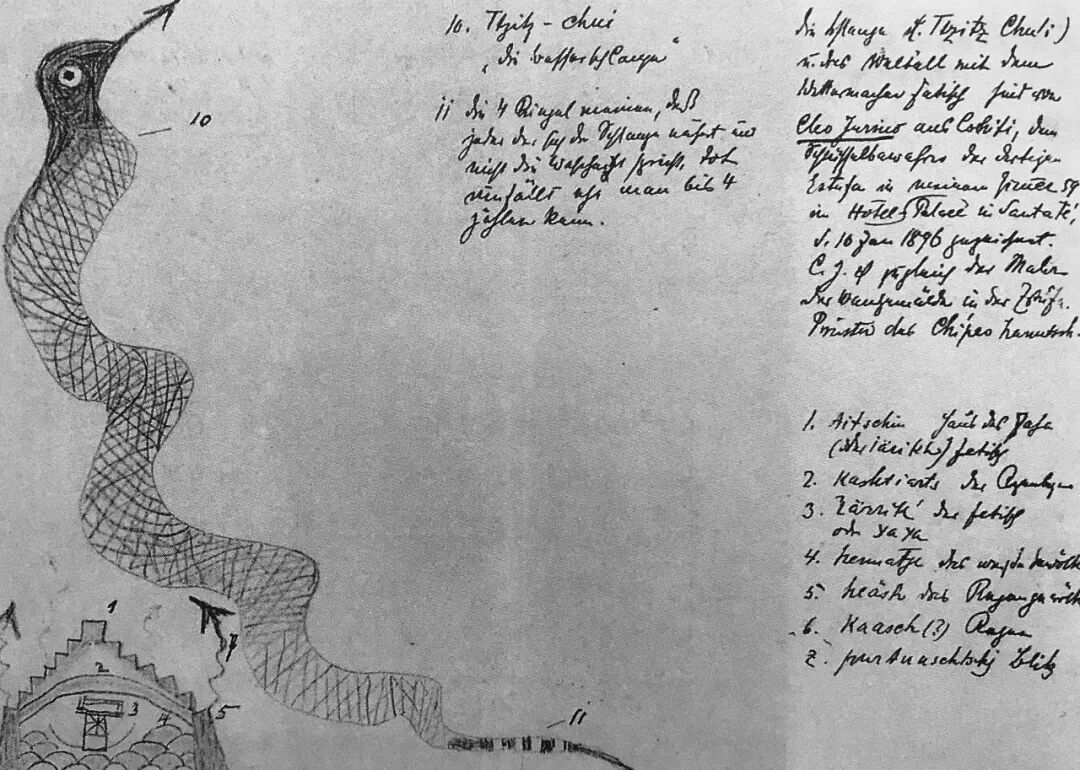 10. Ttzitz-chui
„die Wasserschlange"
11 die 4 Ringel meinen, daß
jeder der sich der Schlange nähert und
nicht die Wahrheit spricht, tot
umfällt ehe man bis 4
zählen kann.
die Schlange (d. Ttzitz Chui)
u. das Weltall mit dem
Wettermacher Fetisch sind von
Cleo Jurino aus Cochiti, dem
der dortigen
Estufa in meinem Zimmer 59
im Hotel Palace in Santa Fé,
d. 10 Jan 1896 gezeichnet.
C. J. ist zugleich der Maler
der Wandgemälde in der Estufa.
Priester des Chipeo Nanutsch.
1. Aitschin Haus des Yaya
Fetisch
2. Kashtiarts der Regenbogen
3. Yerrik der Fetisch
oder Yaya
4. Nematje das
5. das Regengewölk
6. Kaasch (?) Regen
7. Purtunschtschj Blitz
10
1
7
2
3
4
5
11